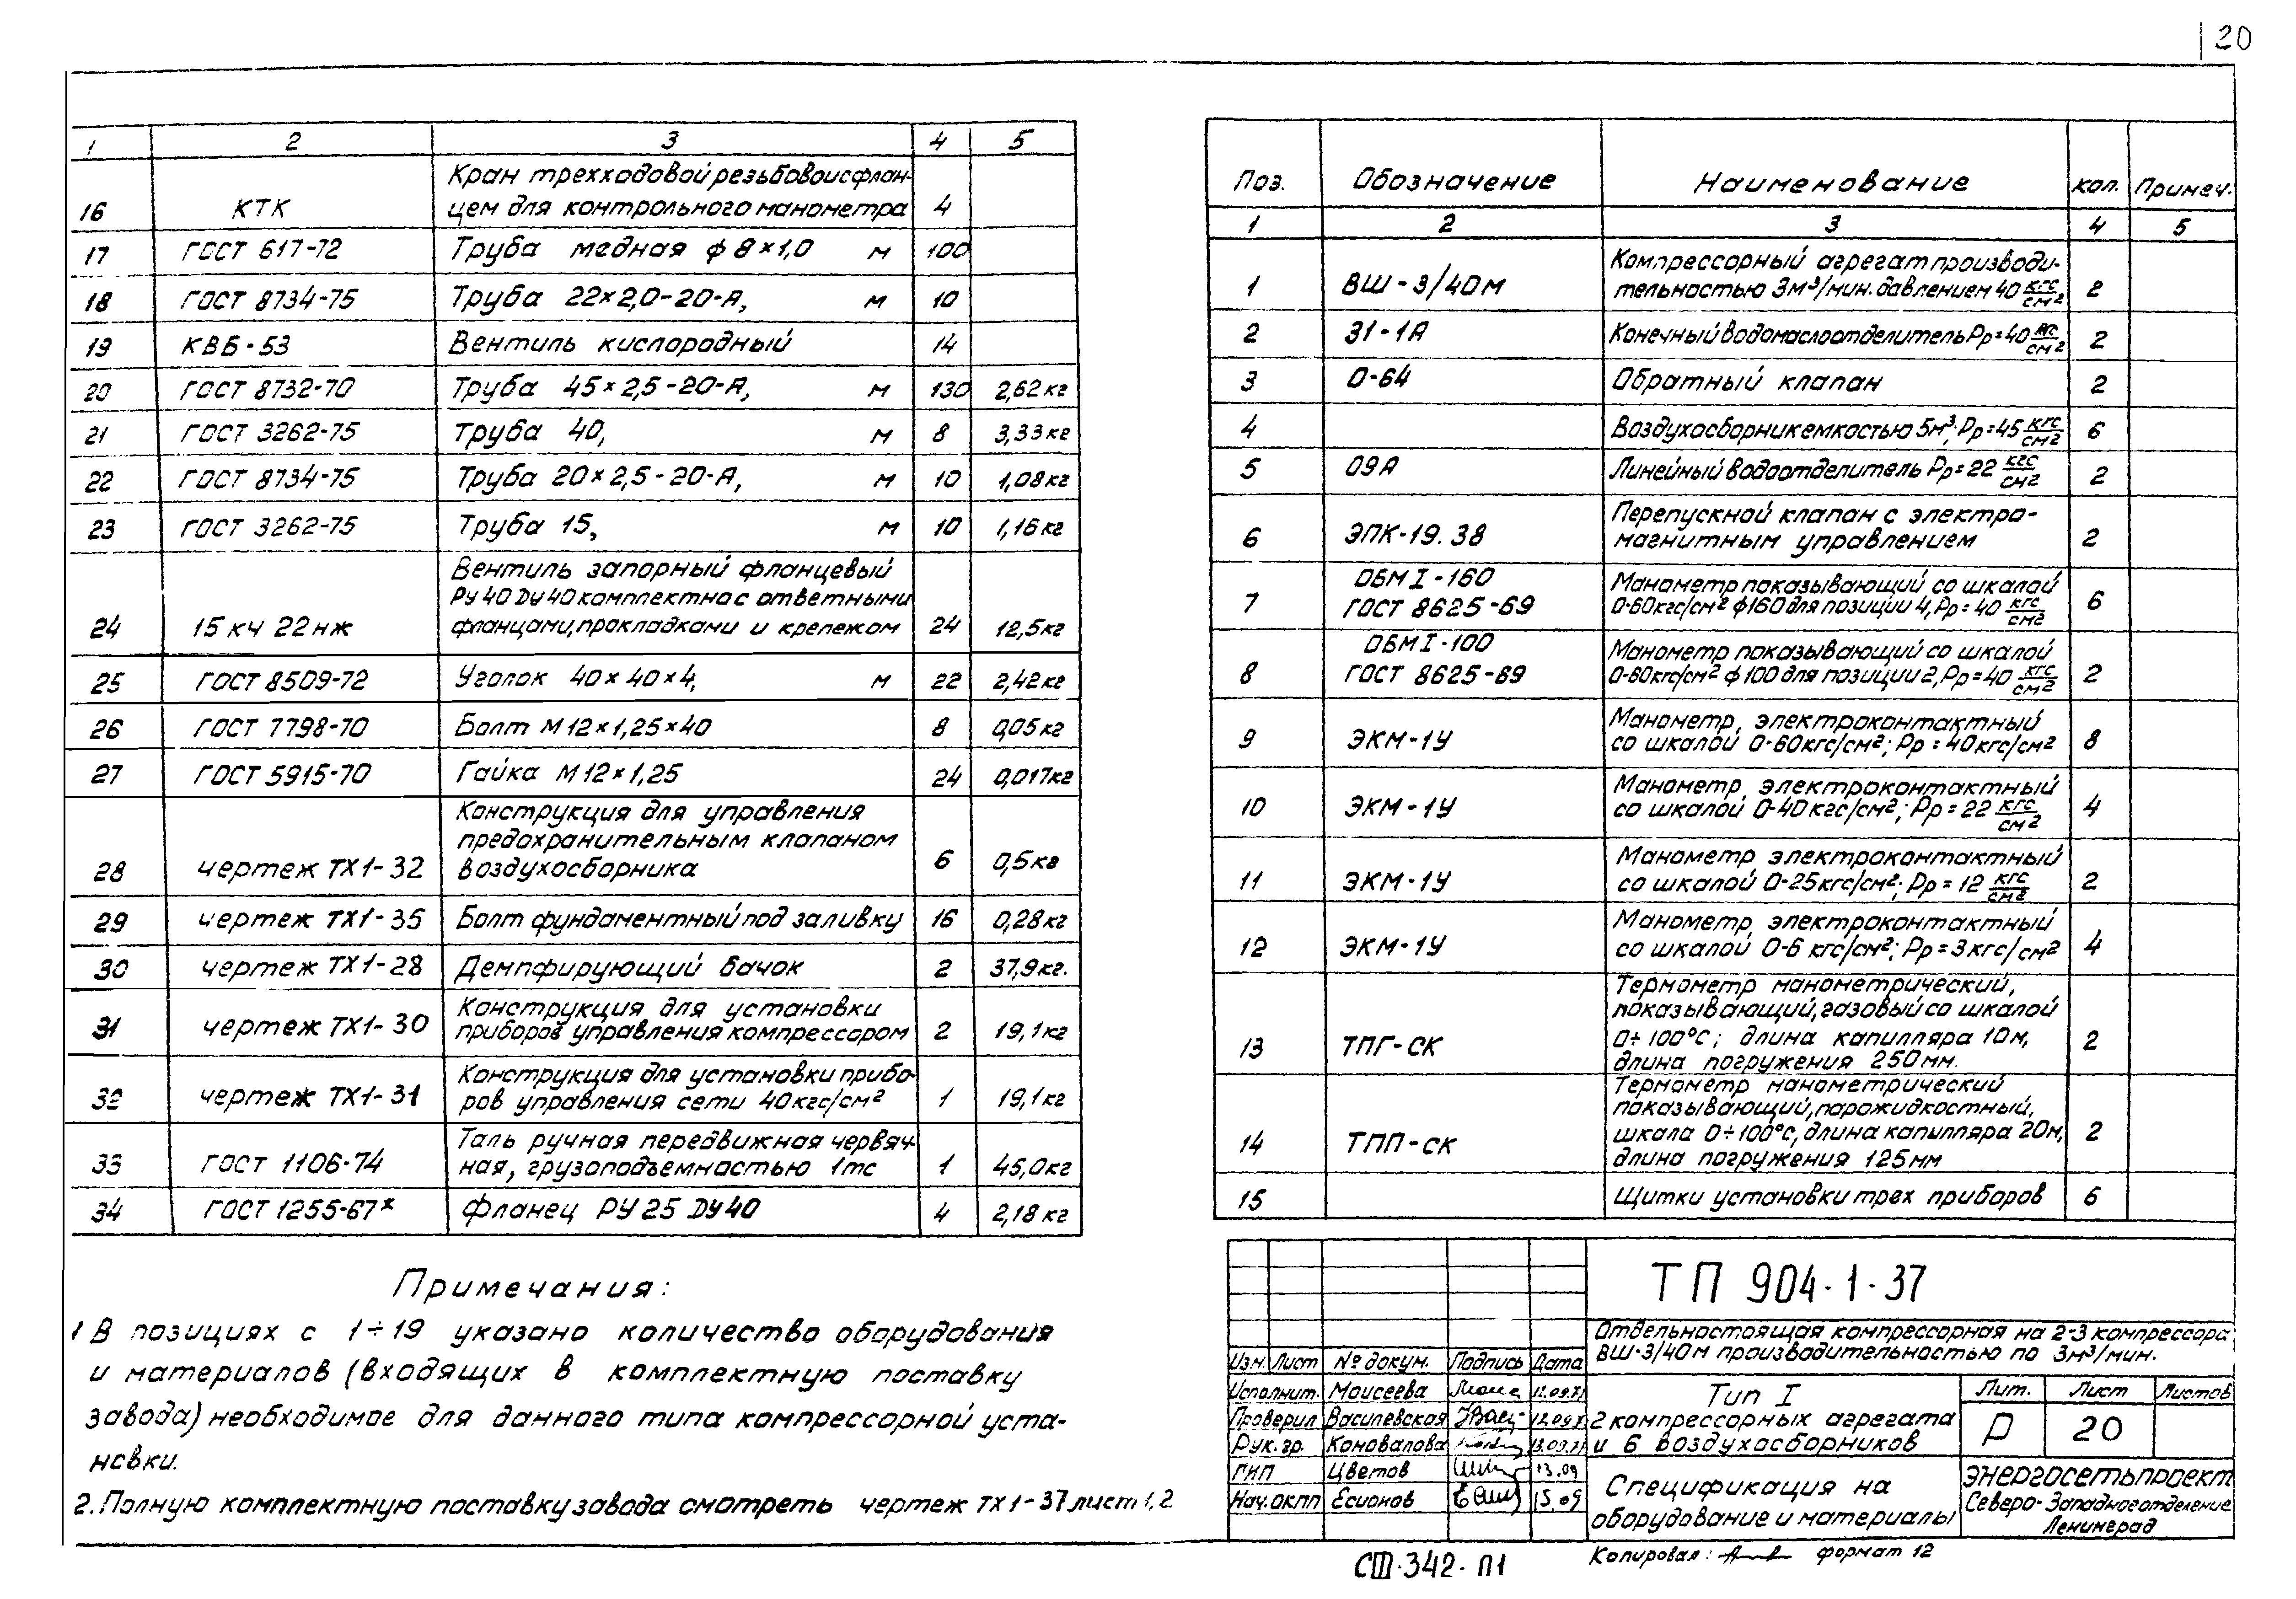 20
1 2 3 4 5
16 КТК Кран трехходовой резьбовой с флан-
цем для контрольного манометра 4
17 ГОСТ 617-72 Труба медная ф 8×1,0 м 100
18 ГОСТ 8734-75 Труба 22×2,0-20-А, м 10
19 КВБ-53 Вентиль кислородный 14
20 ГОСТ 8732-70 Труба 45×2,5-20-А, м 130 2,62кг
21 ГОСТ 3262-75 Труба 40, м 8 3,33кг
22 ГОСТ 8734-75 Труба 20×2,5-20-А, м 10 1,08кг
23 ГОСТ 3262-75 Труба 15, м 10 1,16кг
24 15кч 22нж Вентиль запорный фланцевый
Ру 40 Dу 40 комплектно с ответными
фланцами, прокладками и крепежом 24 12,5кг
25 ГОСТ 8509-72 Уголок 40×40×4, м 22 2,42кг
26 ГОСТ 7798-70 Болт М12×1,25×40 8 0,05кг
27 ГОСТ 5915-70 Гайка М12×1,25 24 0,017кг
28 чертеж ТХ1-32 Конструкция для управления
предохранительным клапаном
воздухосборника 6 0,5кг
29 чертеж ТХ1-35 Болт фундаментный под заливку 16 0,28кг
30 чертеж ТХ1-28 Демпфирующий бачок 2 37,9кг.
31 чертеж ТХ1-30 Конструкция для установки
приборов управления компрессором 2 19,1кг
32 чертеж ТХ1-31 Конструкция для установки прибо-
ров управления сети 40кгс/см² 1 19,1кг
33 ГОСТ 1106-74 Таль ручная передвижная червяч-
ная, грузоподъемностью 1тс 1 45,0кг
34 ГОСТ 1255-67* Фланец РУ25 DУ40 4 2,18кг
Примечания:
1 В позициях с 1÷19 указано количество оборудования
и материалов (входящих в комплектную поставку
завода) необходимое для данного типа компрессорной уста-
новки.
2. Полную комплектную поставку завода смотреть чертеж ТХ1-37 лист 1,2
Поз. Обозначение Наименование кол. Примеч.
1 2 3 4 5
1 ВШ-3/40м Компрессорный агрегат производи-
тельностью 3м³/мин. давлением 40 кгс/см² 2
2 31-1А Конечный водомаслоотделитель Рр=40 кгс/см² 2
3 0-64 Обратный клапан 2
4 Воздухосборник емкостью 5м³, Рр=45 кгс/см² 6
5 09А Линейный водоотделитель Рр=22 кгс/см² 2
6 ЭПК-19.38 Перепускной клапан с электро-
магнитным управлением 2
7 ОБМ I-160
ГОСТ 8625-69 Манометр показывающий со шкалой
0-60кгс/см² ф160 для позиции 4, Рр=40 кгс/см² 6
8 ОБМ I-100
ГОСТ 8625-69 Манометр показывающий со шкалой
0-60кгс/см² ф100 для позиции 2, Рр=40 кгс/см² 2
9 ЭКМ-1У Манометр, электроконтактный
со шкалой 0-60кгс/см²; Рр=40кгс/см² 8
10 ЭКМ-1У Манометр, электроконтактный
со шкалой 0-40кгс/см²; Рр=22 кгс/см² 4
11 ЭКМ-1У Манометр электроконтактный
со шкалой 0-25кгс/см²; Рр=12 кгс/см² 2
12 ЭКМ-1У Манометр, электроконтактный
со шкалой 0-6 кгс/см²; Рр=3кгс/см² 4
13 ТПГ-СК Термометр манометрический,
показывающий, газовый со шкалой
0÷100°С; длина капилляра 10м,
длина погружения 250мм. 2
14 ТПП-СК Термометр манометрический
показывающий, парожидкостный,
шкала 0÷100°С, длина капилляра 20м,
длина погружения 125мм 2
15 Щитки установки трех приборов 6
ТП 904-1-37
Отдельностоящая компрессорная на 2-3 компрессора
ВШ-3/40м производительностью по 3м³/мин.
Изм. Лист № докум. Подпись Дата
Исполнит. Моисеева
Проверил Василевская
Рук. гр. Коновалова
ГИП Цветов 13.09
Нач. ОКПП Есионов 15.09
Тип I
2 компрессорных агрегата
и 6 воздухосборников
Лит. Лист Листов
Р 20
Спецификация на
оборудование и материалы
ЭНЕРГОСЕТЬПРОЕКТ
Северо-Западное отделение
Ленинград
СШ-342-П1
Копировал: формат 12